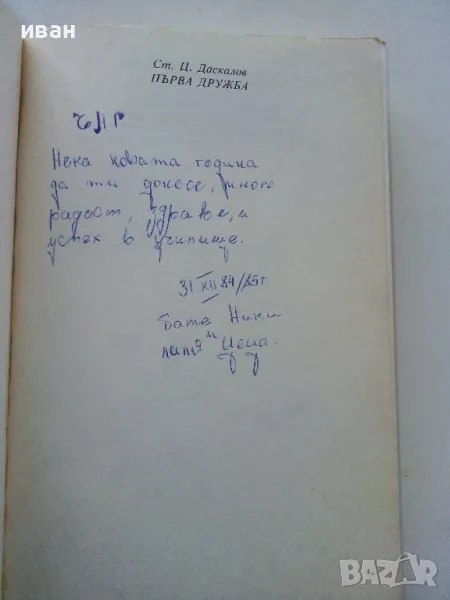 иван
Ст. Ц. Даскалов
ПЪРВА ДРУЖБА
ЧНГ
Нека новата година
да ти донесе, много
радост, здраве, и
успех в училище.
31 XII 84/85г.
Бате Ники
леля и Цеца.
BAZAR